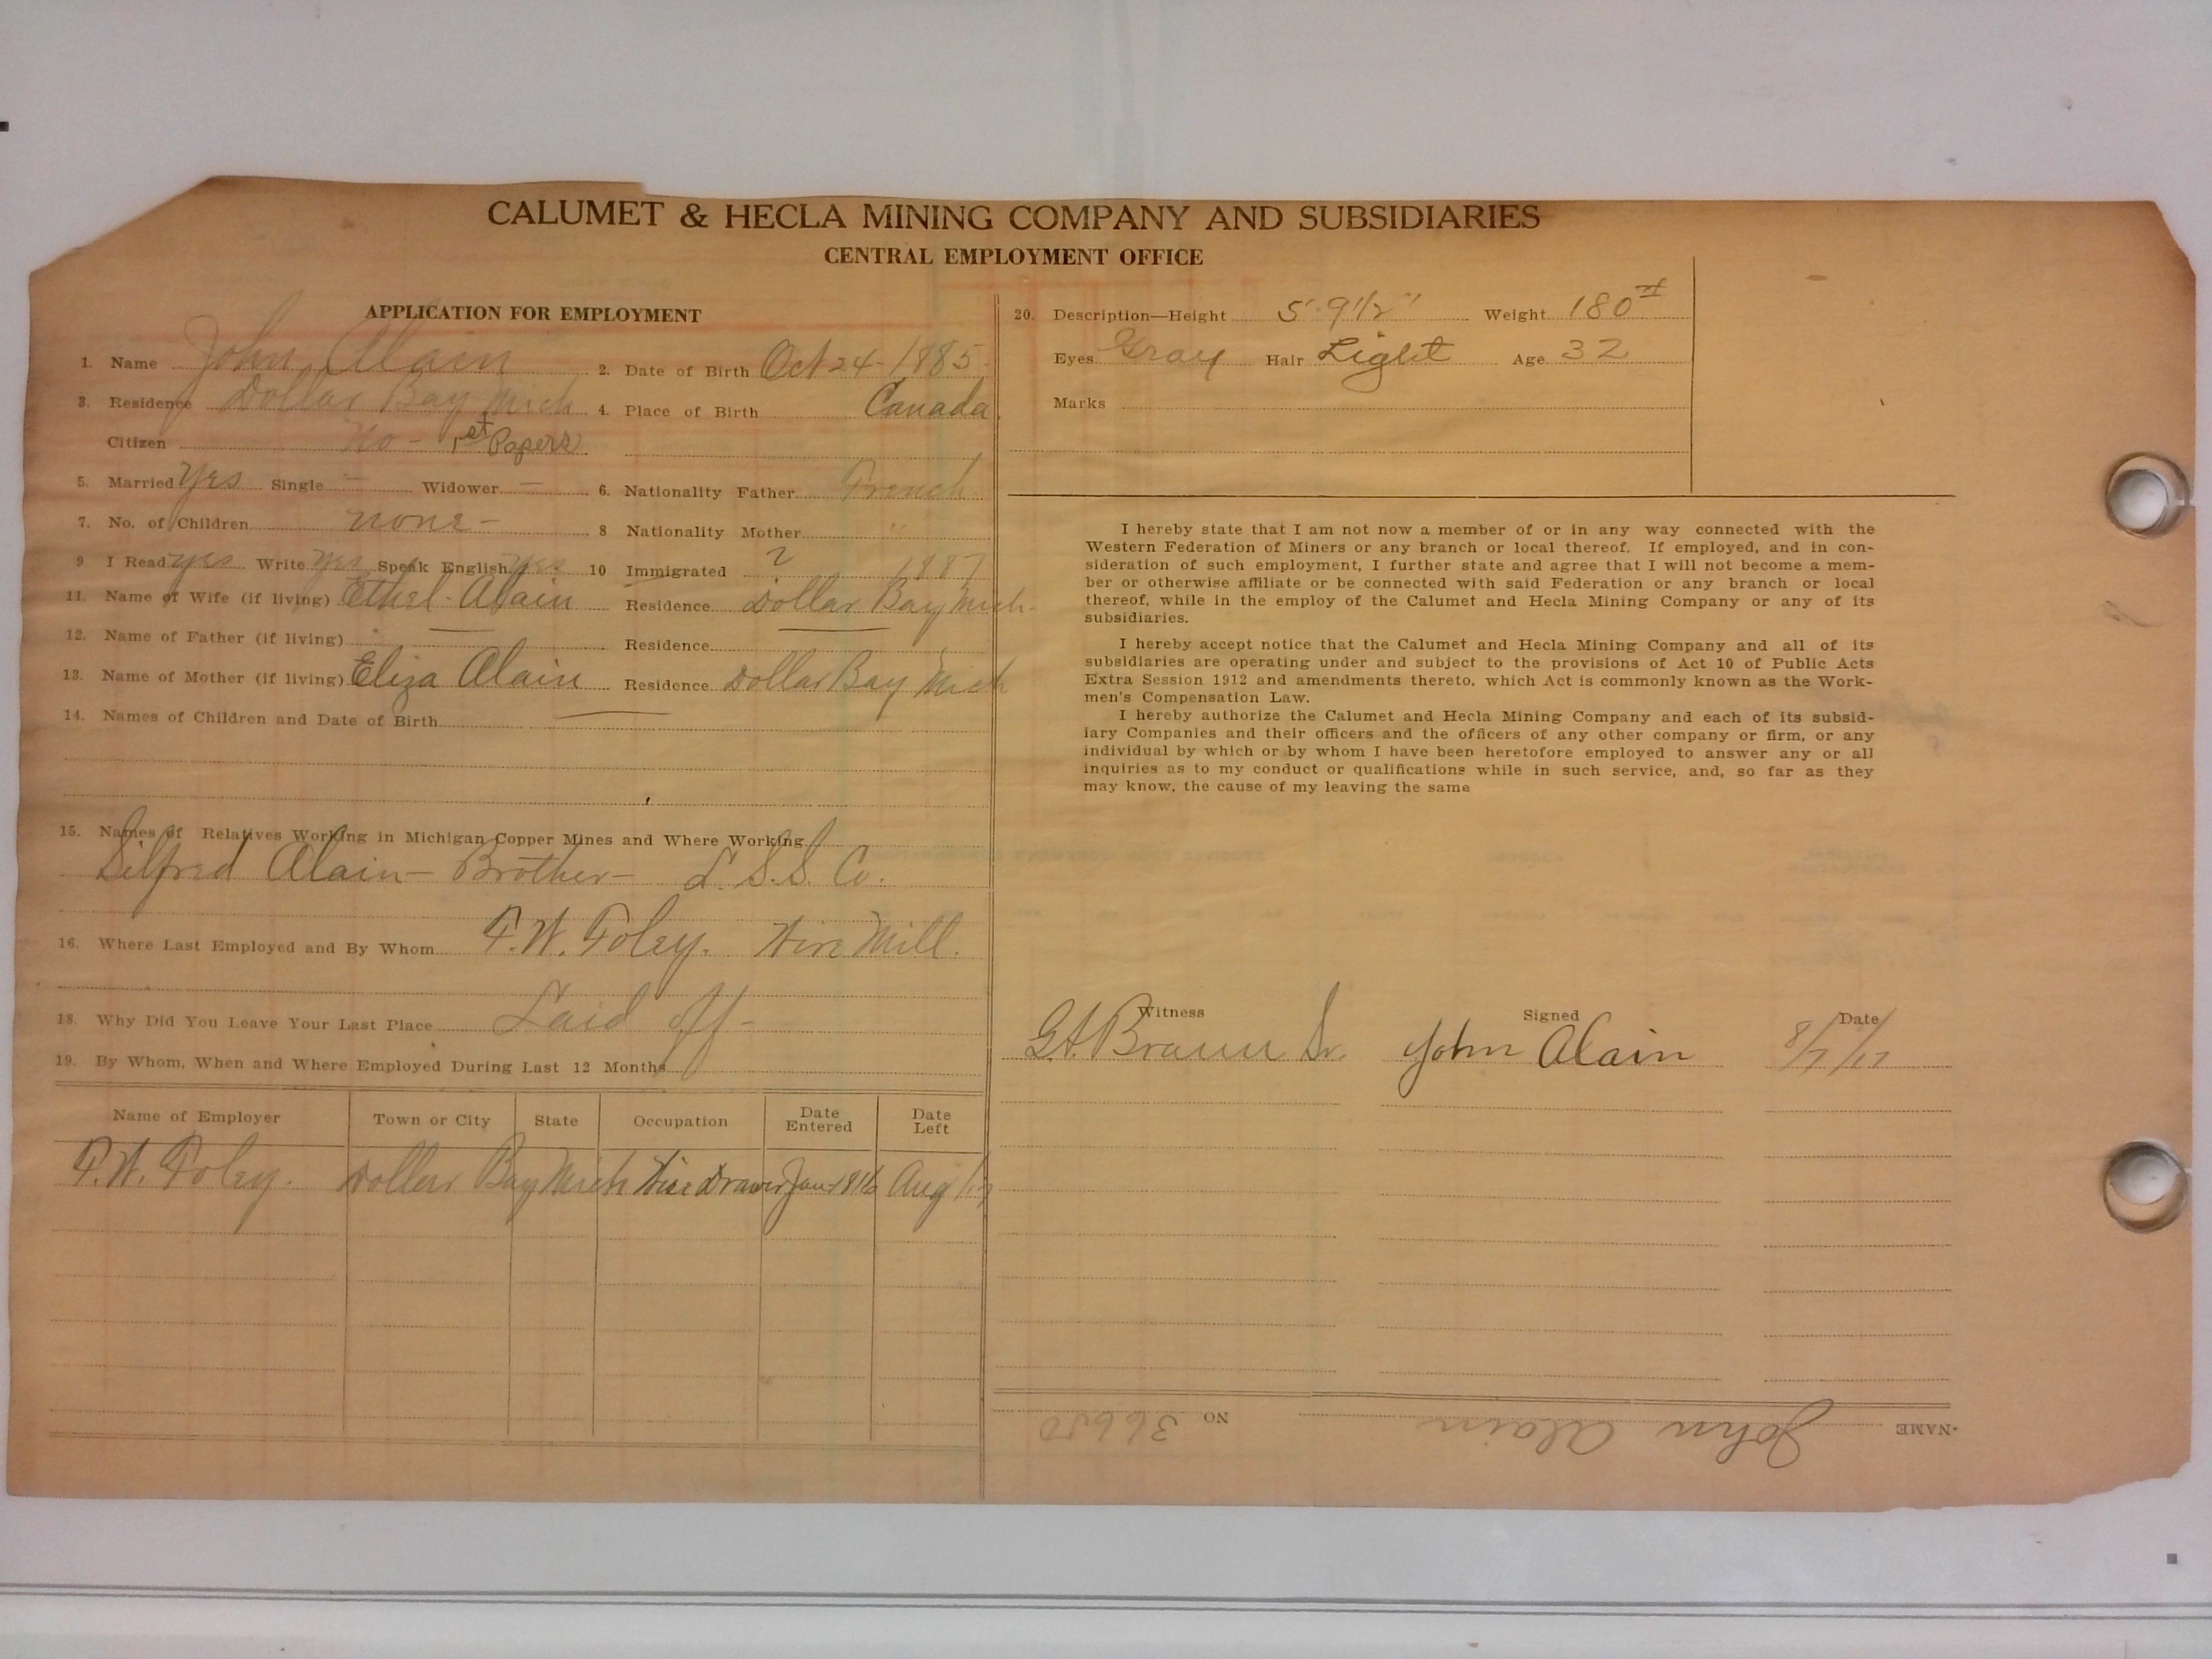 CALUMET & HECLA MINING COMPANY AND SUBSIDIARIES
CENTRAL EMPLOYMENT OFFICE
APPLICATION FOR EMPLOYMENT
1. Name John Alain 2. Date of Birth Oct 24 - 1885
3. Residence Dollar Bay Mich 4. Place of Birth Canada
Citizen No - 1st Papers
5. Married Yes Single - Widower - 6. Nationality Father French
7. No. of Children none - 8 Nationality Mother "
9 I Read yes Write yes Speak English yes 10 Immigrated ? 1887
11. Name of Wife (if living) Ethel Alain Residence Dollar Bay Mich
12. Name of Father (if living) Residence
13. Name of Mother (if living) Eliza Alain Residence Dollar Bay Mich
14. Names of Children and Date of Birth
15. Names of Relatives Working in Michigan Copper Mines and Where Working
Alain - Brother - L.S.S. Co.
16. Where Last Employed and By Whom F.W. Foley. Wire Mill.
18. Why Did You Leave Your Last Place Laid off -
19. By Whom, When and Where Employed During Last 12 Months
Name of Employer Town or City State Occupation Date Entered Date Left
F.W. Foley. Dollar Bay Mich Wire Drawer Jan 1916 Aug 1 17
20. Description—Height 5' 9 1/2" Weight 180#
Eyes Gray Hair Light Age 32
Marks
I hereby state that I am not now a member of or in any way connected with the
Western Federation of Miners or any branch or local thereof. If employed, and in con-
sideration of such employment, I further state and agree that I will not become a mem-
ber or otherwise affiliate or be connected with said Federation or any branch or local
thereof, while in the employ of the Calumet and Hecla Mining Company or any of its
subsidiaries.
I hereby accept notice that the Calumet and Hecla Mining Company and all of its
subsidiaries are operating under and subject to the provisions of Act 10 of Public Acts
Extra Session 1912 and amendments thereto, which Act is commonly known as the Work-
men's Compensation Law.
I hereby authorize the Calumet and Hecla Mining Company and each of its subsid-
iary Companies and their officers and the officers of any other company or firm, or any
individual by which or by whom I have been heretofore employed to answer any or all
inquiries as to my conduct or qualifications while in such service, and, so far as they
may know, the cause of my leaving the same
Witness Signed Date
G.A. Braun Sr. John Alain 8/7/17
NAME John Alain NO 36650